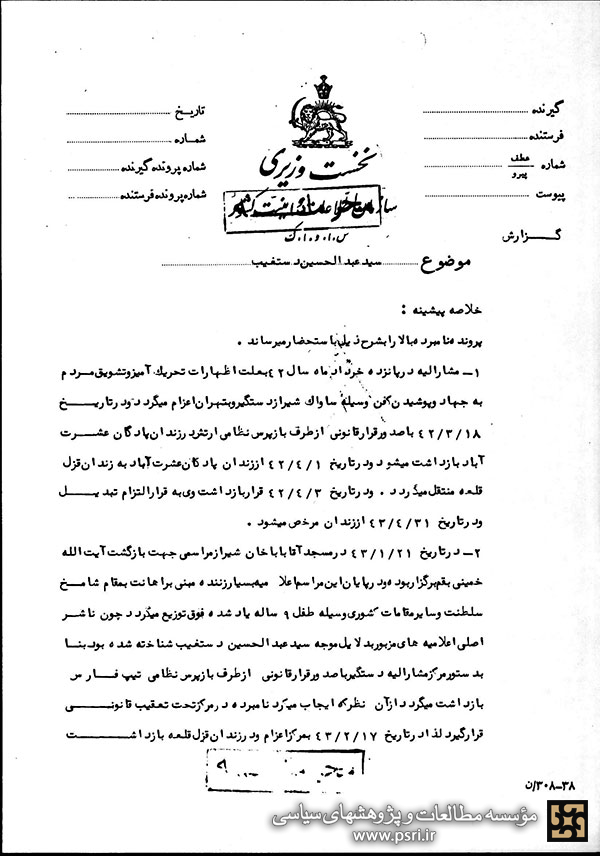 گیرنده
فرستنده
شماره عطف پیرو
پیوست
گزارش
تاریخ
شماره
شماره پرونده گیرنده
شماره پرونده فرستنده
نخست وزیری
سازمان اطلاعات و امنیت کشور
س.ا.و.ا.ک
موضوع سید عبدالحسین دستغیب
خلاصه پیشینه :
پرونده نامبرده بالا را بشرح ذیل باستحضار میرساند .
۱ــ مشارالیه در پانزده خرداد ماه سال ۴۲ بعلت اظهارات تحریک آمیز و تشویق مردم
به جهاد و پوشیدن کفن وسیله ساواک شیراز دستگیر و بتهران اعزام میگردد و در تاریخ
۴۲/۳/۱۸ با صدور قرار قانونی از طرف بازپرس نظامی ارتش در زندان پادگان عشرت
آباد بازداشت میشود و در تاریخ ۴۲/۴/۱ از زندان پادگان عشرت آباد به زندان قزل
قلعه منتقل میگردد . و در تاریخ ۴۲/۴/۳ قرار بازداشت وی به قرار التزام تبدیل
و در تاریخ ۴۳/۴/۳۱ از زندان مرخص میشود .
۲ــ در تاریخ ۴۳/۱/۲۱ در مسجد آقا باباخان شیراز مراسمی جهت بازگشت آیت الله
خمینی بقم برگزار بوده و در پایان این مراسم اعلامیه بسیار زننده مبنی بر اهانت بمقام شامخ
سلطنت و سایر مقامات کشوری وسیله طفل ۹ ساله یاد شده فوق توزیع میگردد چون ناشر
اصلی اعلامیه های مزبور بدلایل موجه سید عبدالحسین دستغیب شناخته شده بود بنا
بدستور مرکز مشارالیه دستگیر با صدور قرار قانونی از طرف بازپرس نظامی تیپ فارس
بازداشت میگردد از آن نظر که ایجاب میکرد نامبرده در مرکز تحت تعقیب قانونی
قرار گیرد لذا در تاریخ ۴۳/۲/۱۷ بمرکز اعزام و در زندان قزل قلعه بازداشت
۳۰۸-۳۸/ن
مؤسسه مطالعات و پژوهشهای سیاسی
www.psri.ir